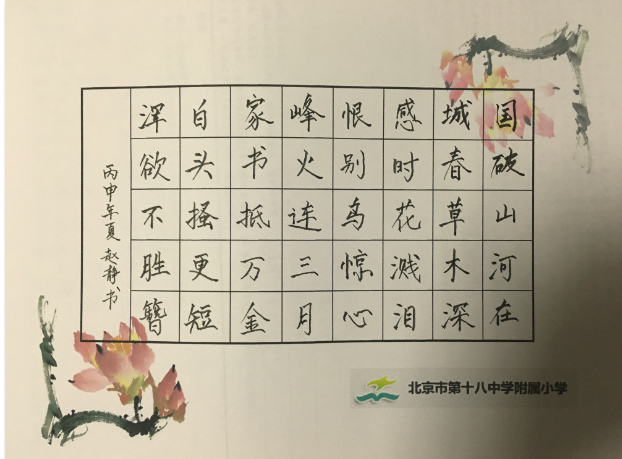 国破山河在
城春草木深
感时花溅泪
恨别鸟惊心
峰火连三月
家书抵万金
白头搔更短
浑欲不胜簪
丙申年夏赵静书
北京市第十八中学附属小学